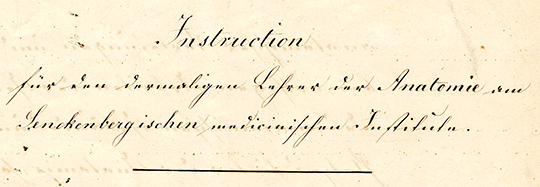 Instruction
für den dermaligen Lehrer der Anatomie am
Senckenbergischen medicinischen Institute.